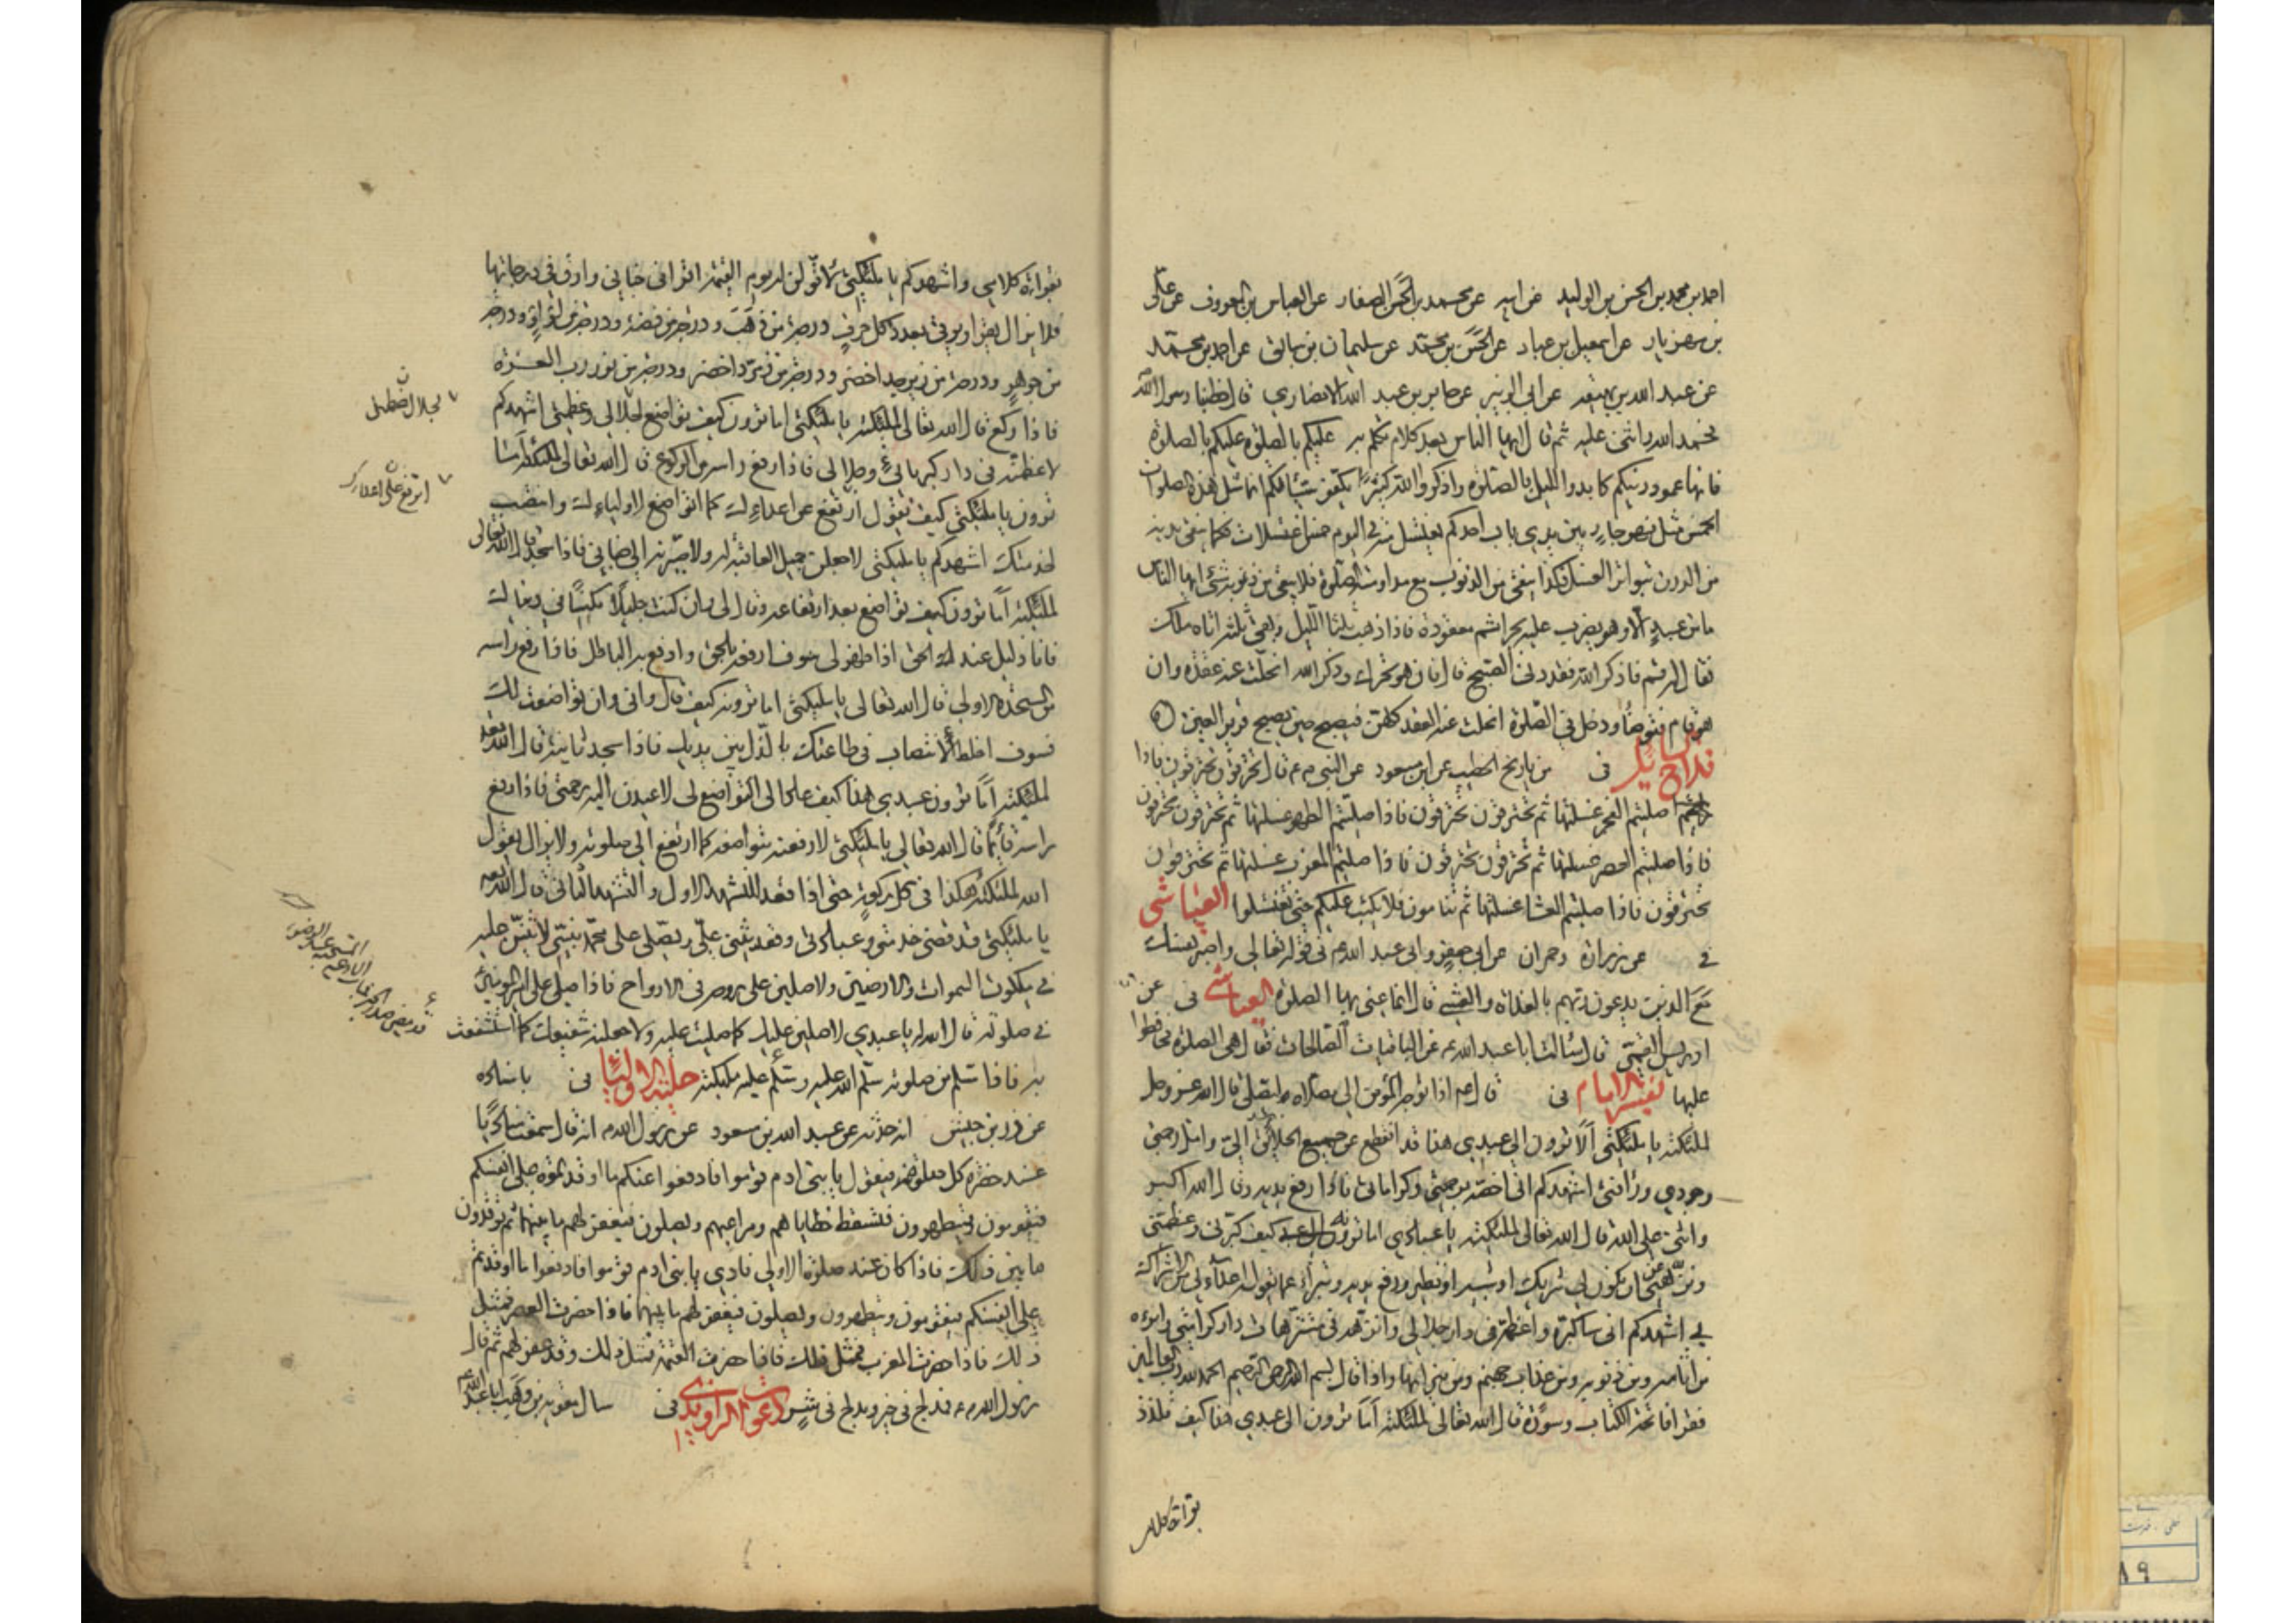 احمد بن محمد بن الحسن بن الوليد عن ابيه عن محمد بن الحسن الصفار عن العباس بن المعروف عن على
بن مهزيار عن اسمعيل بن عباد عن الحسن بن محمد عن سليمان بن سابق عن احمد بن محمد
عن عبد الله بن لهيعه عن ابى الزبير عن جابر بن عبد الله الانصاري قال خطبنا رسول الله
فحمد الله واثنى عليه ثم قال ايها الناس بعد كلام تكلم به عليكم بالصلوة عليكم بالصلوة
فانها عمود دينكم كابدوا الليل بالصلوة واذكروا الله كثيرا يكفر سيئاتكم انما مثل هذه الصلوات
الخمس مثل نهر جار بين يدي باب احدكم يغتسل منه في اليوم خمس اغتسلات فكما ينقى بدنه
من الدرن بتواتر الغسل فكذا ينقى من الذنوب مع مداومته الصلوة فلا يبقى من ذنوبه شئ ايها الناس
ما من عبد الا وهو يضرب عليه بحزائم معقودة فاذا ذهب ثلثا الليل وبقى ثلثه اتاه ملك
فقال له قم فاذكر الله فقد دنى الصبح قال فان هو تحرك وذكر الله انحلت عنه عقدة وان
هو قام فتوضأ ودخل في الصلوة انحلت عنه العقد كلهن فيصبح حين يصبح قرير العين
فلاح السايل فى من تاريخ الخطيب عن ابن مسعود عن النبى م قال تحترقون تحترقون فاذا
صليتم الفجر غسلتها ثم تحترقون تحترقون فاذا صليتم الظهر غسلتها ثم تحترقون تحترقون
فاذا صليتم العصر غسلتها ثم تحترقون تحترقون فاذا صليتم المغرب غسلتها ثم تحترقون
تحترقون فاذا صليتم العشا غسلتها ثم تنامون فلا يكتب عليكم حتى تغتسلوا العياشى
فى عن زرارة وحمران عن ابى جعفر وابى عبد الله ع فى قوله تعالى واصبر نفسك
مع الذين يدعون ربهم بالغداة والعشي قال انما عنى بها الصلوة العياشى فى عن
ادريس القمى قال سالت ابا عبد الله ع عن الباقيات الصالحات فقال هى الصلوة فحافظوا
عليها تفسير الامام فى قال ع م اذا توجه المؤمن الى مصلاه ليصلى قال الله عز وجل
لملئكته يا ملئكتى الا ترون الى عبدي هذا قد انقطع عن جميع الخلائق الى وامل رحمتى
وجودي ورأفتى اشهدكم انى اختصه برحمتى وكراماتى فاذا رفع يديه وقال الله اكبر
واثنى على الله قال الله تعالى لملئكته يا عبادي اما ترونه كيف كبرنى وعظمنى
ونزهنى عن ان يكون لى شريك او شبيه او نظير ورفع يديه وتبرأ عما يقوله اعدآئى من الاشراك
بي اشهدكم انى ساكبره واعظمه فى دار جلالى وانزهه فى متنزهات دار كرامتى وابرءه
من اثامه ومن ذنوبه ومن عذاب جهنم ومن نيرانها واذا قال بسم الله الرحمن الرحيم الحمد لله رب العالمين
فقرا فاتحة الكتاب وسورة قال الله تعالى لملئكته اما ترون الى عبدي هذا كيف تلذذ
بقراءة كلامى
بقراءة كلامى واشهدكم يا ملئكتى لاقولن له يوم القيمة اقرا فى جنانى وارق فى درجاتها
فلا يزال يقرا ويرقى بعدد كل حرف درجة من ذهب ودرجة من فضة ودرجة من لؤلؤه ودرجة
من جوهر ودرجة من زبرجد اخضر ودرجة من زمرد اخضر ودرجة من نور رب العزة
فاذا ركع قال الله تعالى لملئكته يا ملئكتى اما ترون كيف تواضع لجلالى وعظمتى اشهدكم
لاعظمنه فى دار كبريائى وجلالى فاذا رفع راسه من الركوع قال الله تعالى لملئكته اما
ترون يا ملئكتى كيف يقول ارتفع عن اعداءك كما اتواضع لاولياءك وانتصب
لخدمتك اشهدكم يا ملئكتى لاجعلن جميل العاقبة له ولاصيرنه الى جنانى فاذا سجد قال الله تعالى
لملئكته اما ترون كيف تواضع بعد ارتفاعه وقال لى وان كنت جليلا مكينا فى دنياك
فانا ذليل عند الحق اذا ظهر لى سوف ارفعه بالحق وادفع به الباطل فاذا رفع راسه
من السجدة الاولى قال الله تعالى يا ملئكتى اما ترونه كيف قال وانى وان تواضعت لك
فسوف اخلط الانتصاب فى طاعتك بالذل بين يديك فاذا سجد ثانية قال الله تعالى
لملئكته اما ترون عبدي هذا كيف عاد الى التواضع لى لاعيدن اليه رحمتى فاذا رفع
راسه قائما قال الله تعالى يا ملئكتى لارفعنه بتواضعه كما ارتفع الى صلوته ولا يزال يقول
الله لملئكته هكذا فى كل ركعة حتى اذا قعد للتشهد الاول والتشهد الثانى قال الله تعالى
يا ملئكتى قد قضى خدمتى وعبادتى وقعد يثنى على ويصلى على محمد نبيى لاثنين عليه
فى ملكوت السموات والارضين ولاصلين على روحه فى الارواح فاذا صلى على امير المؤمنين
فى صلوته قال الله له يا عبدي لاصلين عليك كما صليت عليه ولاجعلنه شفيعك كما استشفعت
به فاذا سلم من صلوته سلم الله عليه وسلم عليه ملئكته حلية الاوليا فى باسناده
عن زر بن حبيش انه حدثه عن عبد الله بن مسعود عن رسول الله م انه قال سمعت مناديا
عند حضرة كل صلوة فيقول يا بنى ادم قوموا فادفعوا عنكم ما اوقدتموه على انفسكم
فيقومون فيتطهرون فتسقط خطاياهم ويصلون فيغفر لهم ما بينهما ثم توقدون
ما بين ذلك فاذا كان عند صلوة الاولى نادي يا بنى ادم قوموا فادفعوا ما اوقدتم
على انفسكم فيقومون ويتطهرون ويصلون فيغفر لهم ما بينهما فاذا حضرت العصر فمثل
ذلك فاذا حضرت المغرب فمثل ذلك فاذا حضرت العتمة فمثل ذلك وقد غفر لهم ثم قال
رسول الله م فمدلج فى خير ومدلج فى شر دعوات الراوندى فى سال معوية بن وهب ابا عبد الله